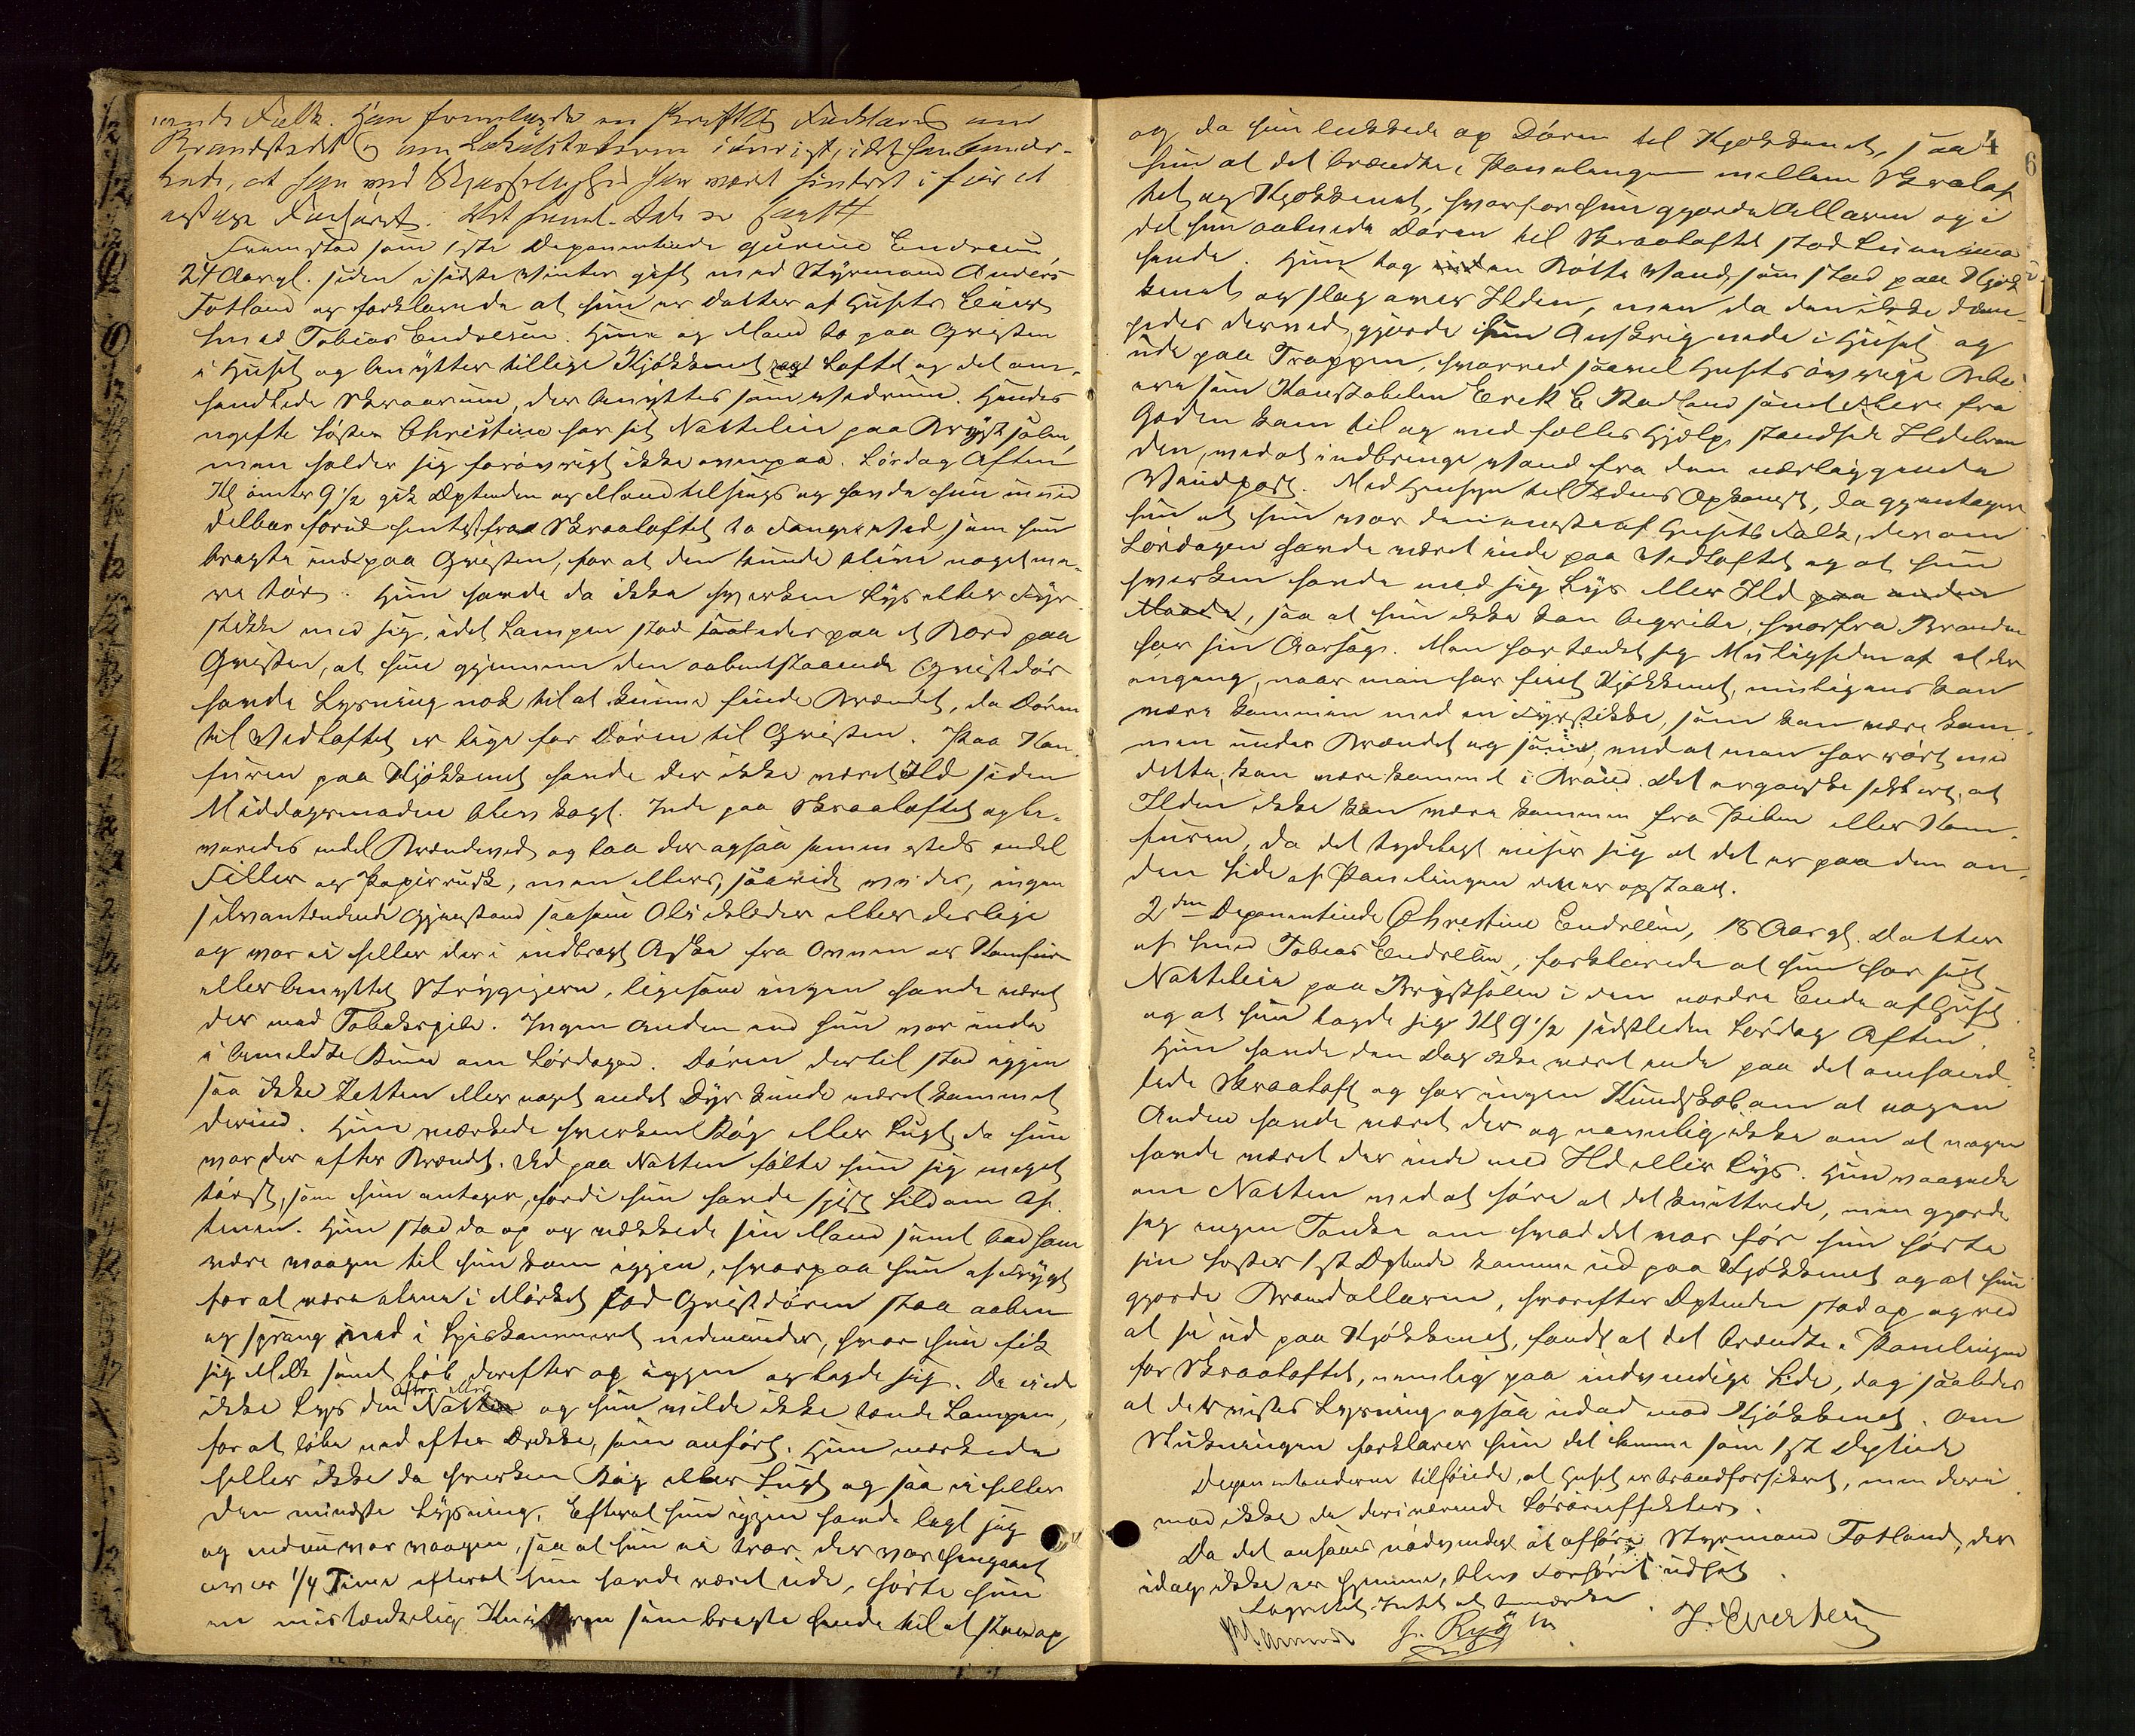 vende Folk. Han fremlagde en skriftlig Forklaring om
Brandstedet og om Lokaliteterne iøvrigt, idet han bemær-
kede, at han ved Skjøsløshed har været hindret i før at
optage Forhøret. Det freml. Dok. er saal.
Fremstod som 1ste Deponentinde Gurine Endresen,
24 Aar gl. siden i sidste Vinter gift med Styrmand Anders
Totland og forklarede at hun er Datter af Husets Eier
Smed Tobias Endresen. Hun og Mand bo paa Qvisten
i Huset og benytter tillige Kjøkkenet og Loftet og det om-
handlede Skraarum, der benyttes som Vedrum. Hendes
ugifte Søster Christine har sit Natteleie paa Brystsalen,
men holder sig forøvrigt ikke ovenpaa. Lørdag Aften
Kl omtr 9 1/2 gik Dptinden og Mand tilsengs og havde hun umid
delbar forud hentet fra Skraaloftet to Fange Ved, som hun
bragte ind paa Qvisten, for at den kunde blive noget me-
re tør. Hun havde da ikke hverken Lys eller Fyr-
stikke med sig, idet Lampen stod saaledes paa et Bord paa
Qvisten, at hun gjennem den aabentstaaende Qvistdør
havde Lysning nok til at kunne finde Brændet, da Døren
til Vedloftet er lige for Døren til Qvisten. Paa Kom-
furen paa Kjøkkenet havde der ikke været Ild siden
Middagsmaden blev kogt. Inde paa Skraaloftet opbe-
varedes endel Brændeved og laa der ogsaa sammesteds endel
Filler og Papirrusk, men ellers, saavidt vides, ingen
selvantændende Gjenstand saasom Olieklæder eller deslige
og var ei heller der i indbragt Aske fra Ovnen og Komfur
eller benyttet Strygejern, ligesom ingen havde været
der med Tobakspibe. Ingen Anden end hun var inde
i bemeldte Rum om Lørdagen. Døren dertil stod igjen
saa ikke Katten eller noget andet Dyr kunde været kommet
derind. Hun mærkede hverken Røg eller Lugt, da hun
var der efter Brændet. Ud paa Natten følte hun sig meget
tørst, som hun antager, fordi hun havde spist Sild om Af-
tenen. Hun stod da op og vækkede sin Mand samt bad ham
være vaagen til hun kom igjen, hvorpaa hun af Frygt
for at være alene i Mørket lod Qvistdøren staa aaben
og sprang ned i Spiskammeret nedenunder, hvor hun fik
sig Melk samt løb derefter op igjen og lagde sig. De havde
Aften eller
ikke Lys den Natten og hun vilde ikke tænde Lampen,
for at løbe ned efter Drikke, som anført. Hun mærkede
heller ikke da hverken Røg eller Lugt og saa ei heller
den mindste Lysning. Efterat hun igjen havde lagt sig
og endnu var vaagen, saa at hun ei tror, der var hengaaet
over 1/4 Time efterat hun havde været ude, hørte hun
en mistænkelig Knittren som bragte hende til at staa op
4
6
og da hun lukkede op Døren til Kjøkkenet, saa
hun at det brændte i Panelingen mellem Skraalof
tet og Kjøkkenet, hvorfor hun gjorde Allarm og i
det hun aabnede Døren til Skraaloftet stod Luen imod
hende. Hun tog en Bøtte Vand, som stod paa Kjøk
kenet og slog over Ilden, men da den ikke dæm-
pedes derved, gjorde hun Anskrig nede i Huset og
ude paa Trappen, hvorved saavel Husets øvrige Bebo
ere som Konstabelen Erik E Stadland samt Flere fra
Gaden kom til og ved fælles Hjælp standsede Ildebran
den, ved at indbringe Vand fra den nærliggende
Vandpost. Med Hensyn til Ildens Opkomst, da gjentager
hun at hun var den eneste af Husets Folk, der om
Lørdagen havde været inde paa Vedloftet og at hun
hverken havde med sig Lys eller Ild paa anden
Maade, saa at hun ikke kan begribe, hvorfra Branden
har sin Aarsag. Man har tænkt sig Muligheden af at der
engang, naar man har feiet Kjøkkenet, muligens kan
være kommen med en Fyrstikke, som kan være kom-
men under Brændet og som, ved at man har rørt ved
dette, kan være kommet i Brand. Det er ganske sikkert, at
Ilden ikke kan være kommen fra Piben eller Kom-
furen, da det tydeligt viser sig at det er paa den an-
den Side af Panelingen den er opstaaet.
2den Deponentinde Christine Endresen, 18 Aar gl. Datter
af Smed Tobias Endresen, forklarede at hun har sit
Natteleie paa Brystsalen i den nordre Ende af Huset
og at hun lagde sig Kl 9 1/2 sidstleden Lørdag Aften.
Hun havde den Dag ikke været inde paa det omhand-
lede Skraaloft og har ingen Kundskab om at nogen
Anden havde været der og navnlig ikke om at nogen
havde været der inde med Ild eller Lys. Hun vaagnede
om Natten ved at høre at det knittrede, men gjorde
sig ingen Tanke om hvad det var før hun hørte
sin Søster 1ste Dptinde komme ud paa Kjøkkenet og at hun
gjorde Brandallarm, hvorefter Dptinden stod op og ved
at se ud paa Kjøkkenet, fandt at det brændte i Panelingen
for Skraaloftet, nemlig paa indvendige Side, dog saaledes
at der vistes Lysning ogsaa udad mod Kjøkkenet. Om
Slukningen forklarer hun det samme som 1ste Dptinde
Deponentinderne tilføiede, at Huset er brandforsikret, men deri
mod ikke de deriværende Løsøreffekter.
Da det ansaaes nødvendigt at afhøre Styrmand Totland, der
idag ikke er hjemme, blev Forhøret udsat.
Lagrettet Intet at bemærke.
J. Ryg J. Evertsen